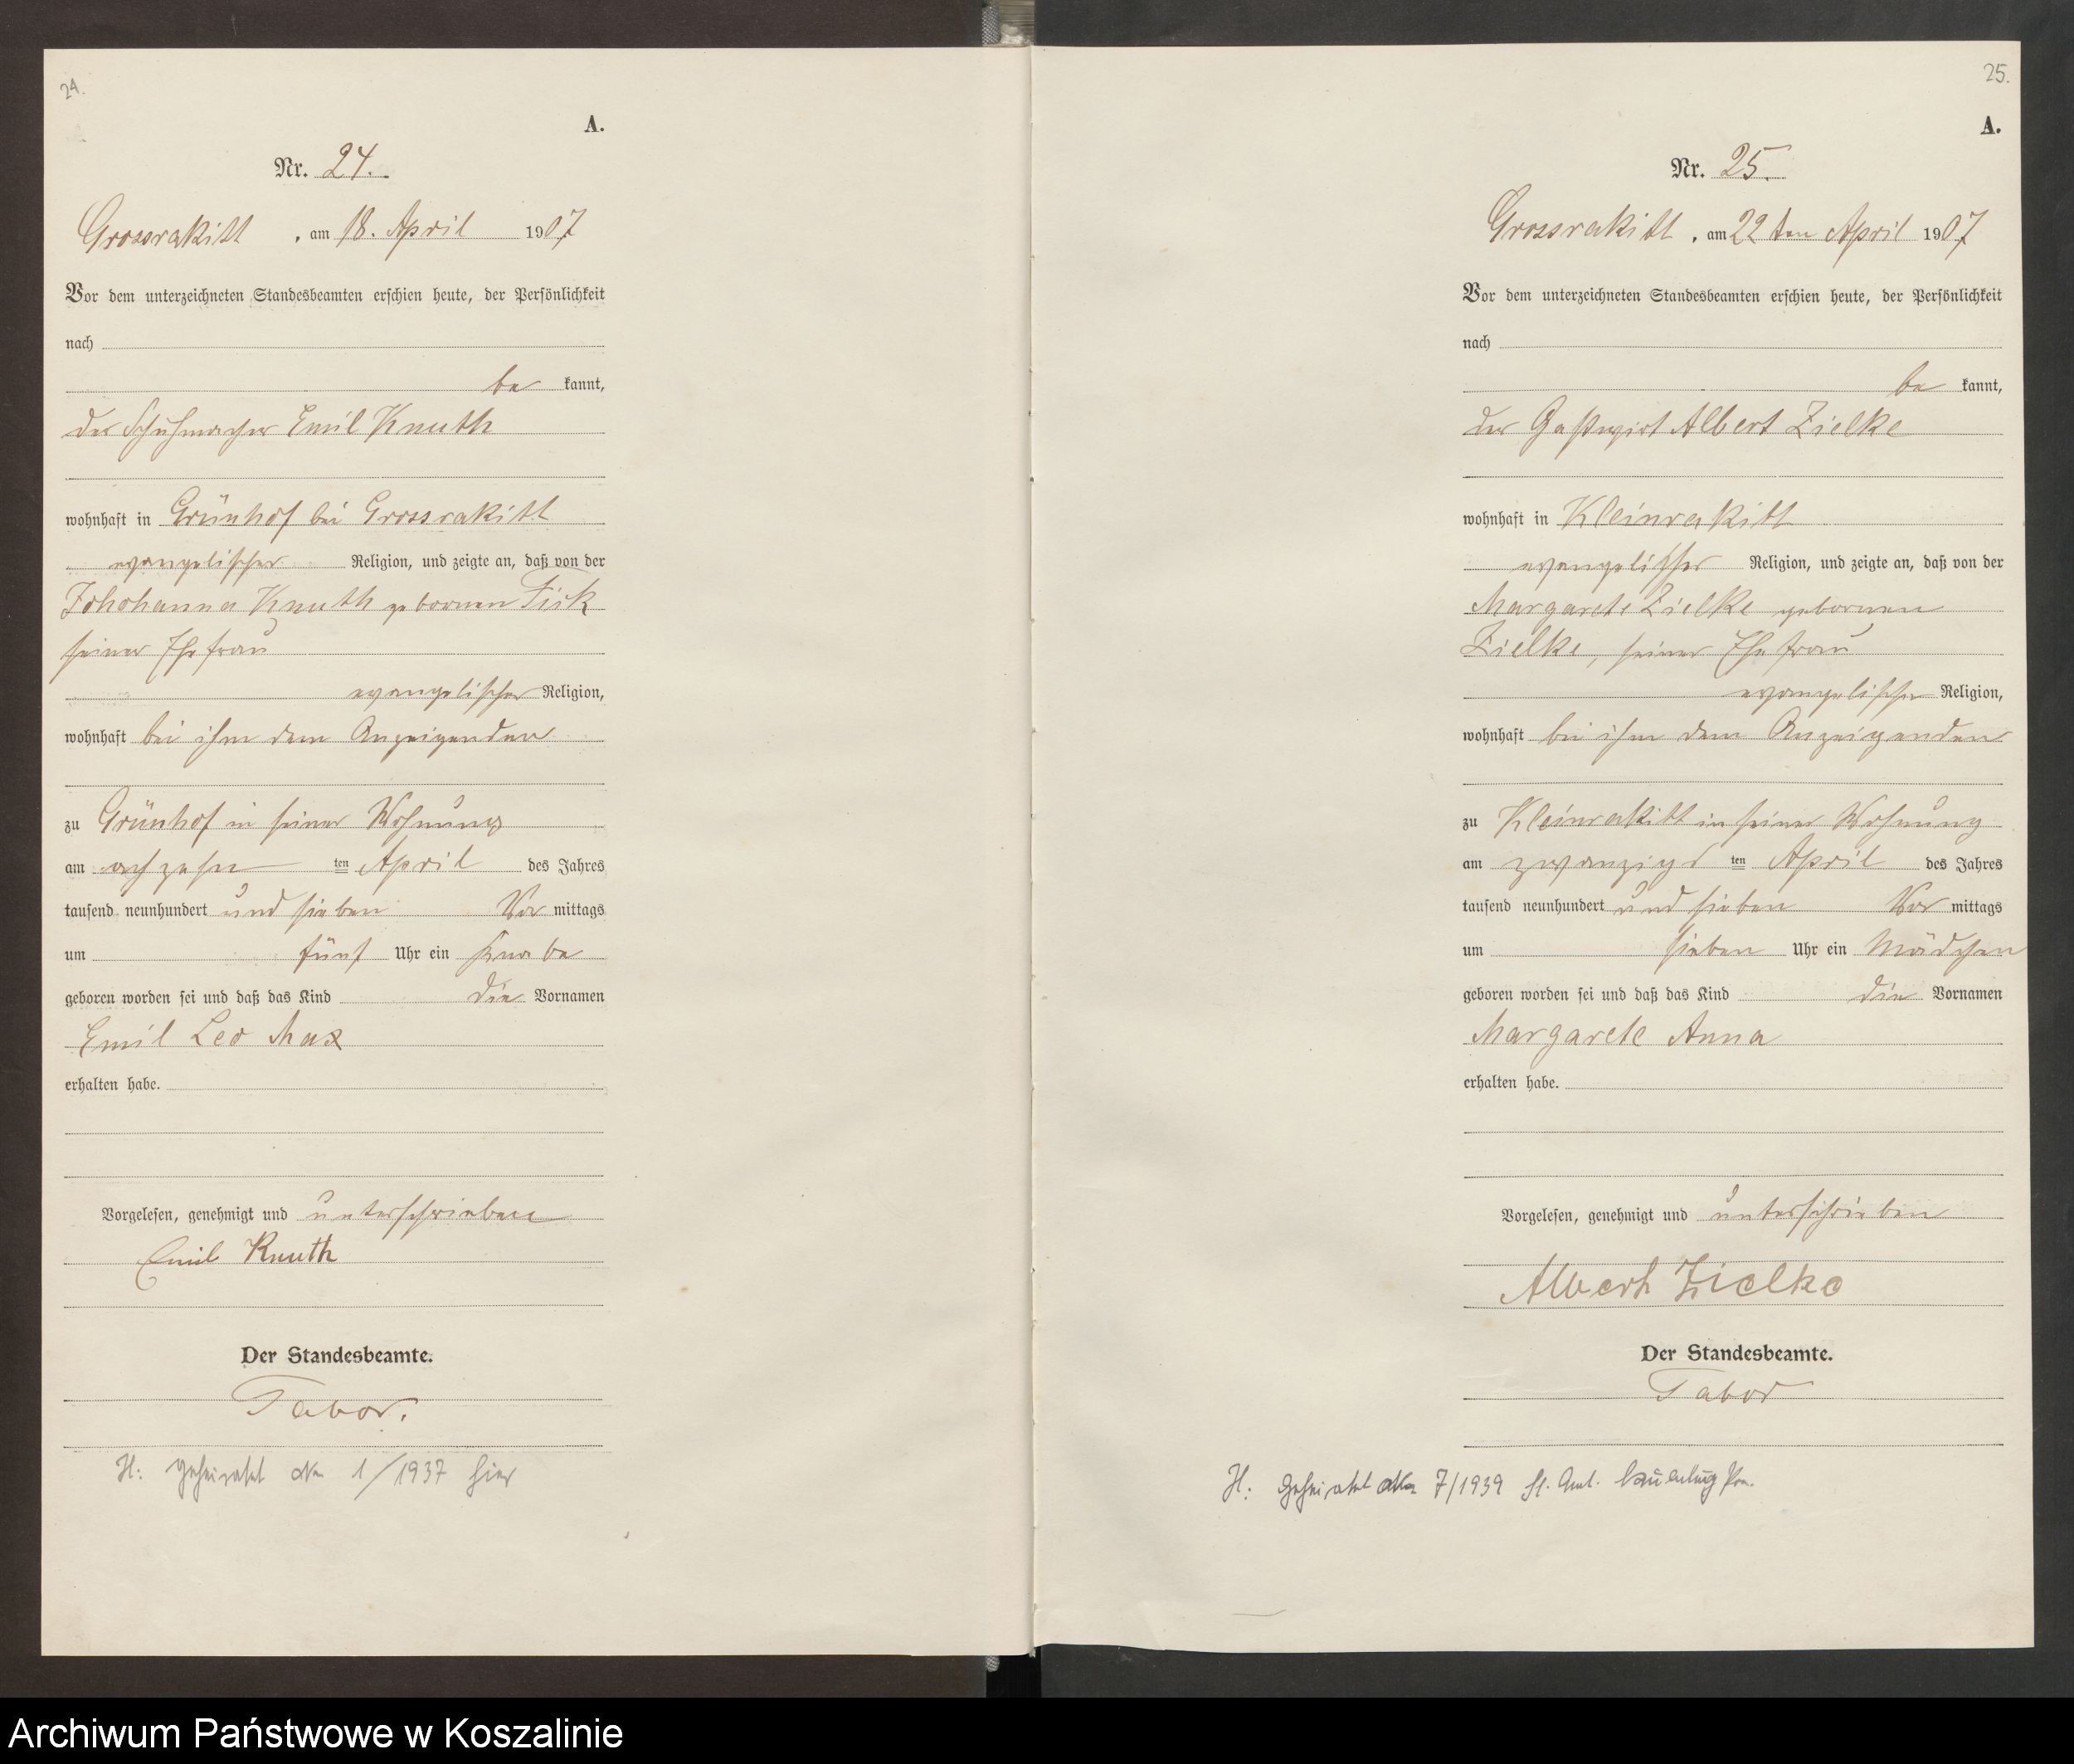 24.
A.
Nr. 24.
Grossrakitt, am 18. April 1907
Vor dem unterzeichneten Standesbeamten erschien heute, der Persönlichkeit
nach
be kannt,
der Schuhmacher Emil Knuth
wohnhaft in Grünhof bei Grossrakitt
evangelischer Religion, und zeigte an, daß von der
Johohanna Knuth gebornen Fick
seiner Ehefrau
evangelischer Religion,
wohnhaft bei ihm dem Anzeigenden
zu Grünhof in seiner Wohnung
am achzehn ten April des Jahres
tausend neunhundert und sieben Vor mittags
um fünf Uhr ein Knabe
geboren worden sei und daß das Kind die Vornamen
Emil Leo Max
erhalten habe.
Vorgelesen, genehmigt und unterschrieben
Emil Knuth
Der Standesbeamte.
Tabor.
H: geheiratet Nr. 1/1937 hier
25.
A.
Nr. 25.
Grossrakitt, am 22 ten April 1907
Vor dem unterzeichneten Standesbeamten erschien heute, der Persönlichkeit
nach
be kannt,
der Gastwirt Albert Zielke
wohnhaft in Kleinrakitt
evangelischer Religion, und zeigte an, daß von der
Margarete Zielke gebornen
Zielke, seiner Ehefrau
evangelischer Religion,
wohnhaft bei ihm dem Anzeigenden
zu Kleinrakitt in seiner Wohnung
am zwanzigs ten April des Jahres
tausend neunhundert und sieben Vor mittags
um sieben Uhr ein Mädchen
geboren worden sei und daß das Kind die Vornamen
Margarete Anna
erhalten habe.
Vorgelesen, genehmigt und unterschrieben
Albert Zielke
Der Standesbeamte.
Tabor
H: geheiratet Nr. 7/1939 St. Amt. Lauenburg Pom.
Archiwum Państwowe w Koszalinie